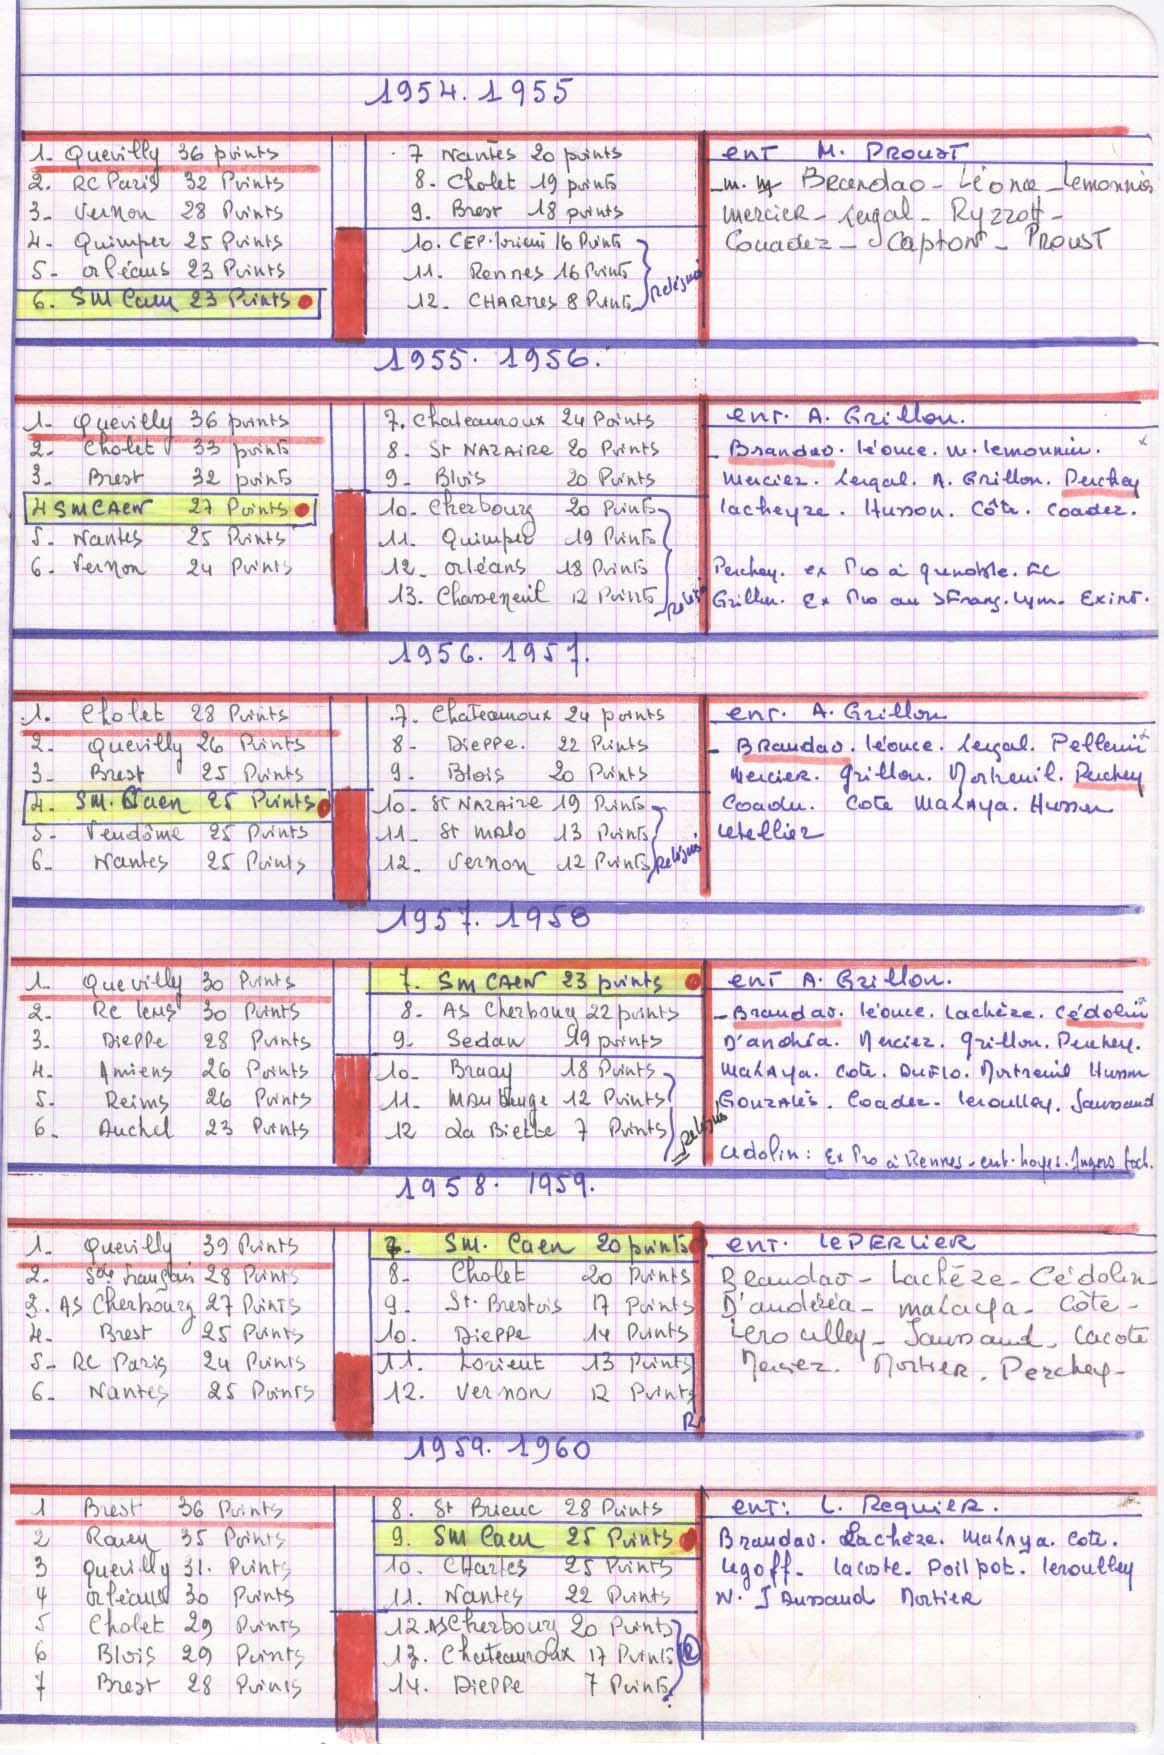 1954.1955
1. Quevilly 36 points
2. RC Paris 32 Points
3. Vernon 28 Points
4. Quimper 25 Points
5. Orléans 23 Points
6. SM Caen 23 Points
7 Nantes 20 points
8. Cholet 19 points
9. Brest 18 points
10. CEP. Lorient 16 Points
11. Rennes 16 Points
12. CHARTRES 8 Points
Relégués
ent M. PROUST
Brandao - Léonce - Lemonnier
Mercier - Lergal -
Couadez - Capton - PROUST
1955.1956.
1. Quevilly 36 points
2. Cholet 33 points
3. Brest 32 points
4 SM CAEN 27 Points
5. Nantes 25 Points
6. Vernon 24 Points
7. Chateauroux 24 Points
8. St NAZAIRE 20 Points
9. Blois 20 Points
10. Cherbourg 20 Points
11. Quimper 19 Points
12. Orléans 18 Points
13. Chasseneuil 12 Points
ent. A. Grillon.
- Brandao. Léonce. M. Lemonnier.
Mercier. Lergal. A. Grillon. Perchey
Lacheyre. Husson. Côte. Coadez.
Perchey. ex Pro à Grenoble. FC
Grillon. Ex Pro au
1956.1957.
1. Cholet 28 Points
2. Quevilly 26 Points
3. Brest 25 Points
4. SM. Caen 25 Points
5. Vendôme 25 Points
6. Nantes 25 Points
7. Chateauroux 24 points
8. Dieppe. 22 Points
9. Blois 20 Points
10. St NAZAIRE 19 Points
11. St Malo 13 Points
12. Vernon 12 Points
Relégués
ent. A. Grillon
- Brandao. Léonce. Lergal.
Mercier. Grillon. Mortreuil. Perchey
Coadez. Cote MALAYA. Husson
Letellier
1957.1958
1. Quevilly 30 Points
2. RC Lens 30 Points
3. Dieppe 28 Points
4. Amiens 26 Points
5. Reims 26 Points
6. Auchel 23 Points
7. SM CAEN 23 points
8. AS Cherbourg 22 points
9. Sedan 19 points
10. Bruay 18 Points
11. Maubeuge 12 Points
12 7 Points
Relégués
ent A. Grillon.
- Brandao. Léonce. Lachèze. Cédolin
D'andréa. Mercier. Grillon. Perchey.
MALAYA. Cote. DUFLO. Mortreuil Husson
GONZALÈS. Coadez. Leroulley. Jaussaud
Cédolin: Ex Pro à Rennes
1958.1959.
1. Quevilly 39 Points
2. Sde Français 28 Points
3. AS Cherbourg 27 Points
4. Brest 25 Points
5. RC Paris 24 Points
6. Nantes 25 Points
7. SM. Caen 20 points
8. Cholet 20 Points
9. St. Brestois 17 Points
10. Dieppe 14 Points
11. Lorient 13 Points
12. Vernon 12 Points
R
ent. LEPERLIER
Brandao - Lachèze - Cédolin -
D'andréa - Malaya - Côte -
Leroulley - Jaussaud. Lacoste
Mercier. Mortier. Perchey -
1959.1960
1 Brest 36 Points
2 Rouen 35 Points
3 Quevilly 31. Points
4 Orléans 30 Points
5 Cholet 29 Points
6 Blois 29 Points
7 Brest 28 Points
8. St Brieuc 28 Points
9. SM Caen 25 Points
10. Chartres 25 Points
11. Nantes 22 Points
12. AS Cherbourg 20 Points
13. Chateauroux 17 Points
14. Dieppe 7 Points
R
ent: L. Requier.
Brandao. Lachèze. MALAYA. Cote.
Ugoff. Lacoste. Poilpot. Leroulley
N. Jaussaud Mortier